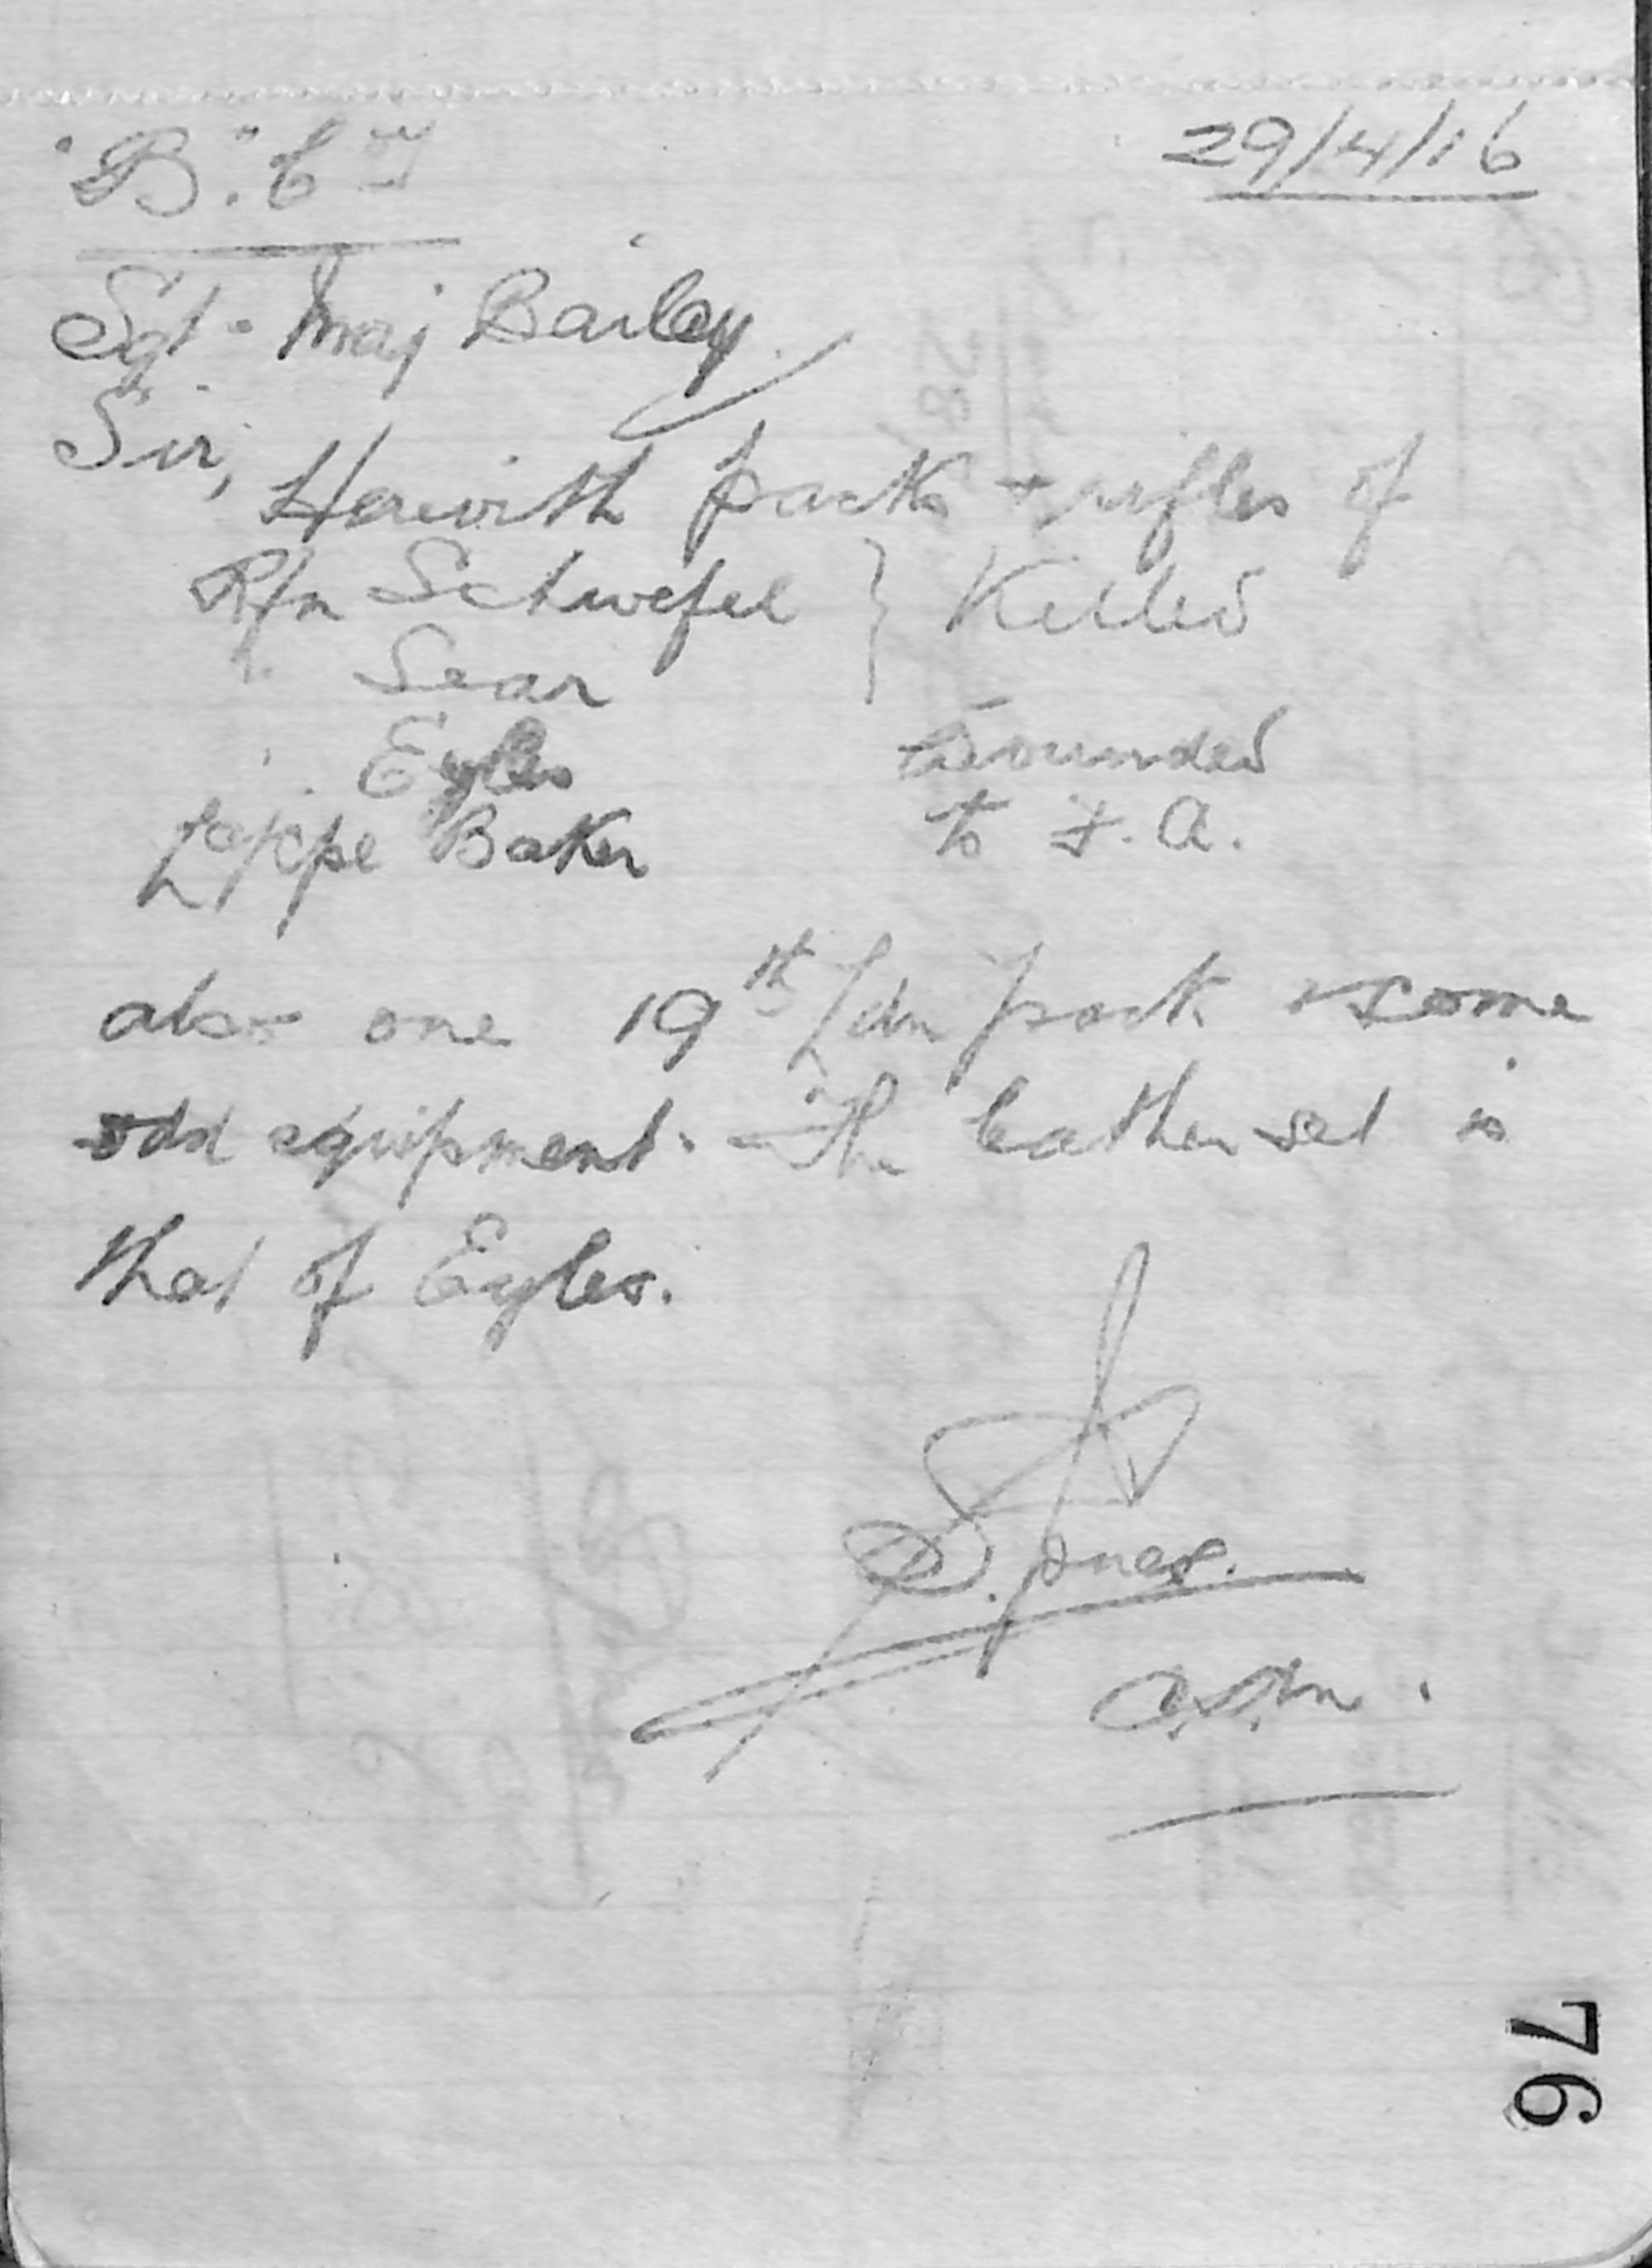 "B" Coy 29/4/16
Sgt. Maj Bailey
Sir,
Herewith packs + rifles of
Rfn Schwefel } Killed
" Sear
" Eyles Wounded
L/Cpl Baker to F.A.
also one 19th Ldn pack + some
odd equipment. The leather set is
that of Eyles.
S. Jones.
C.S.M.
76